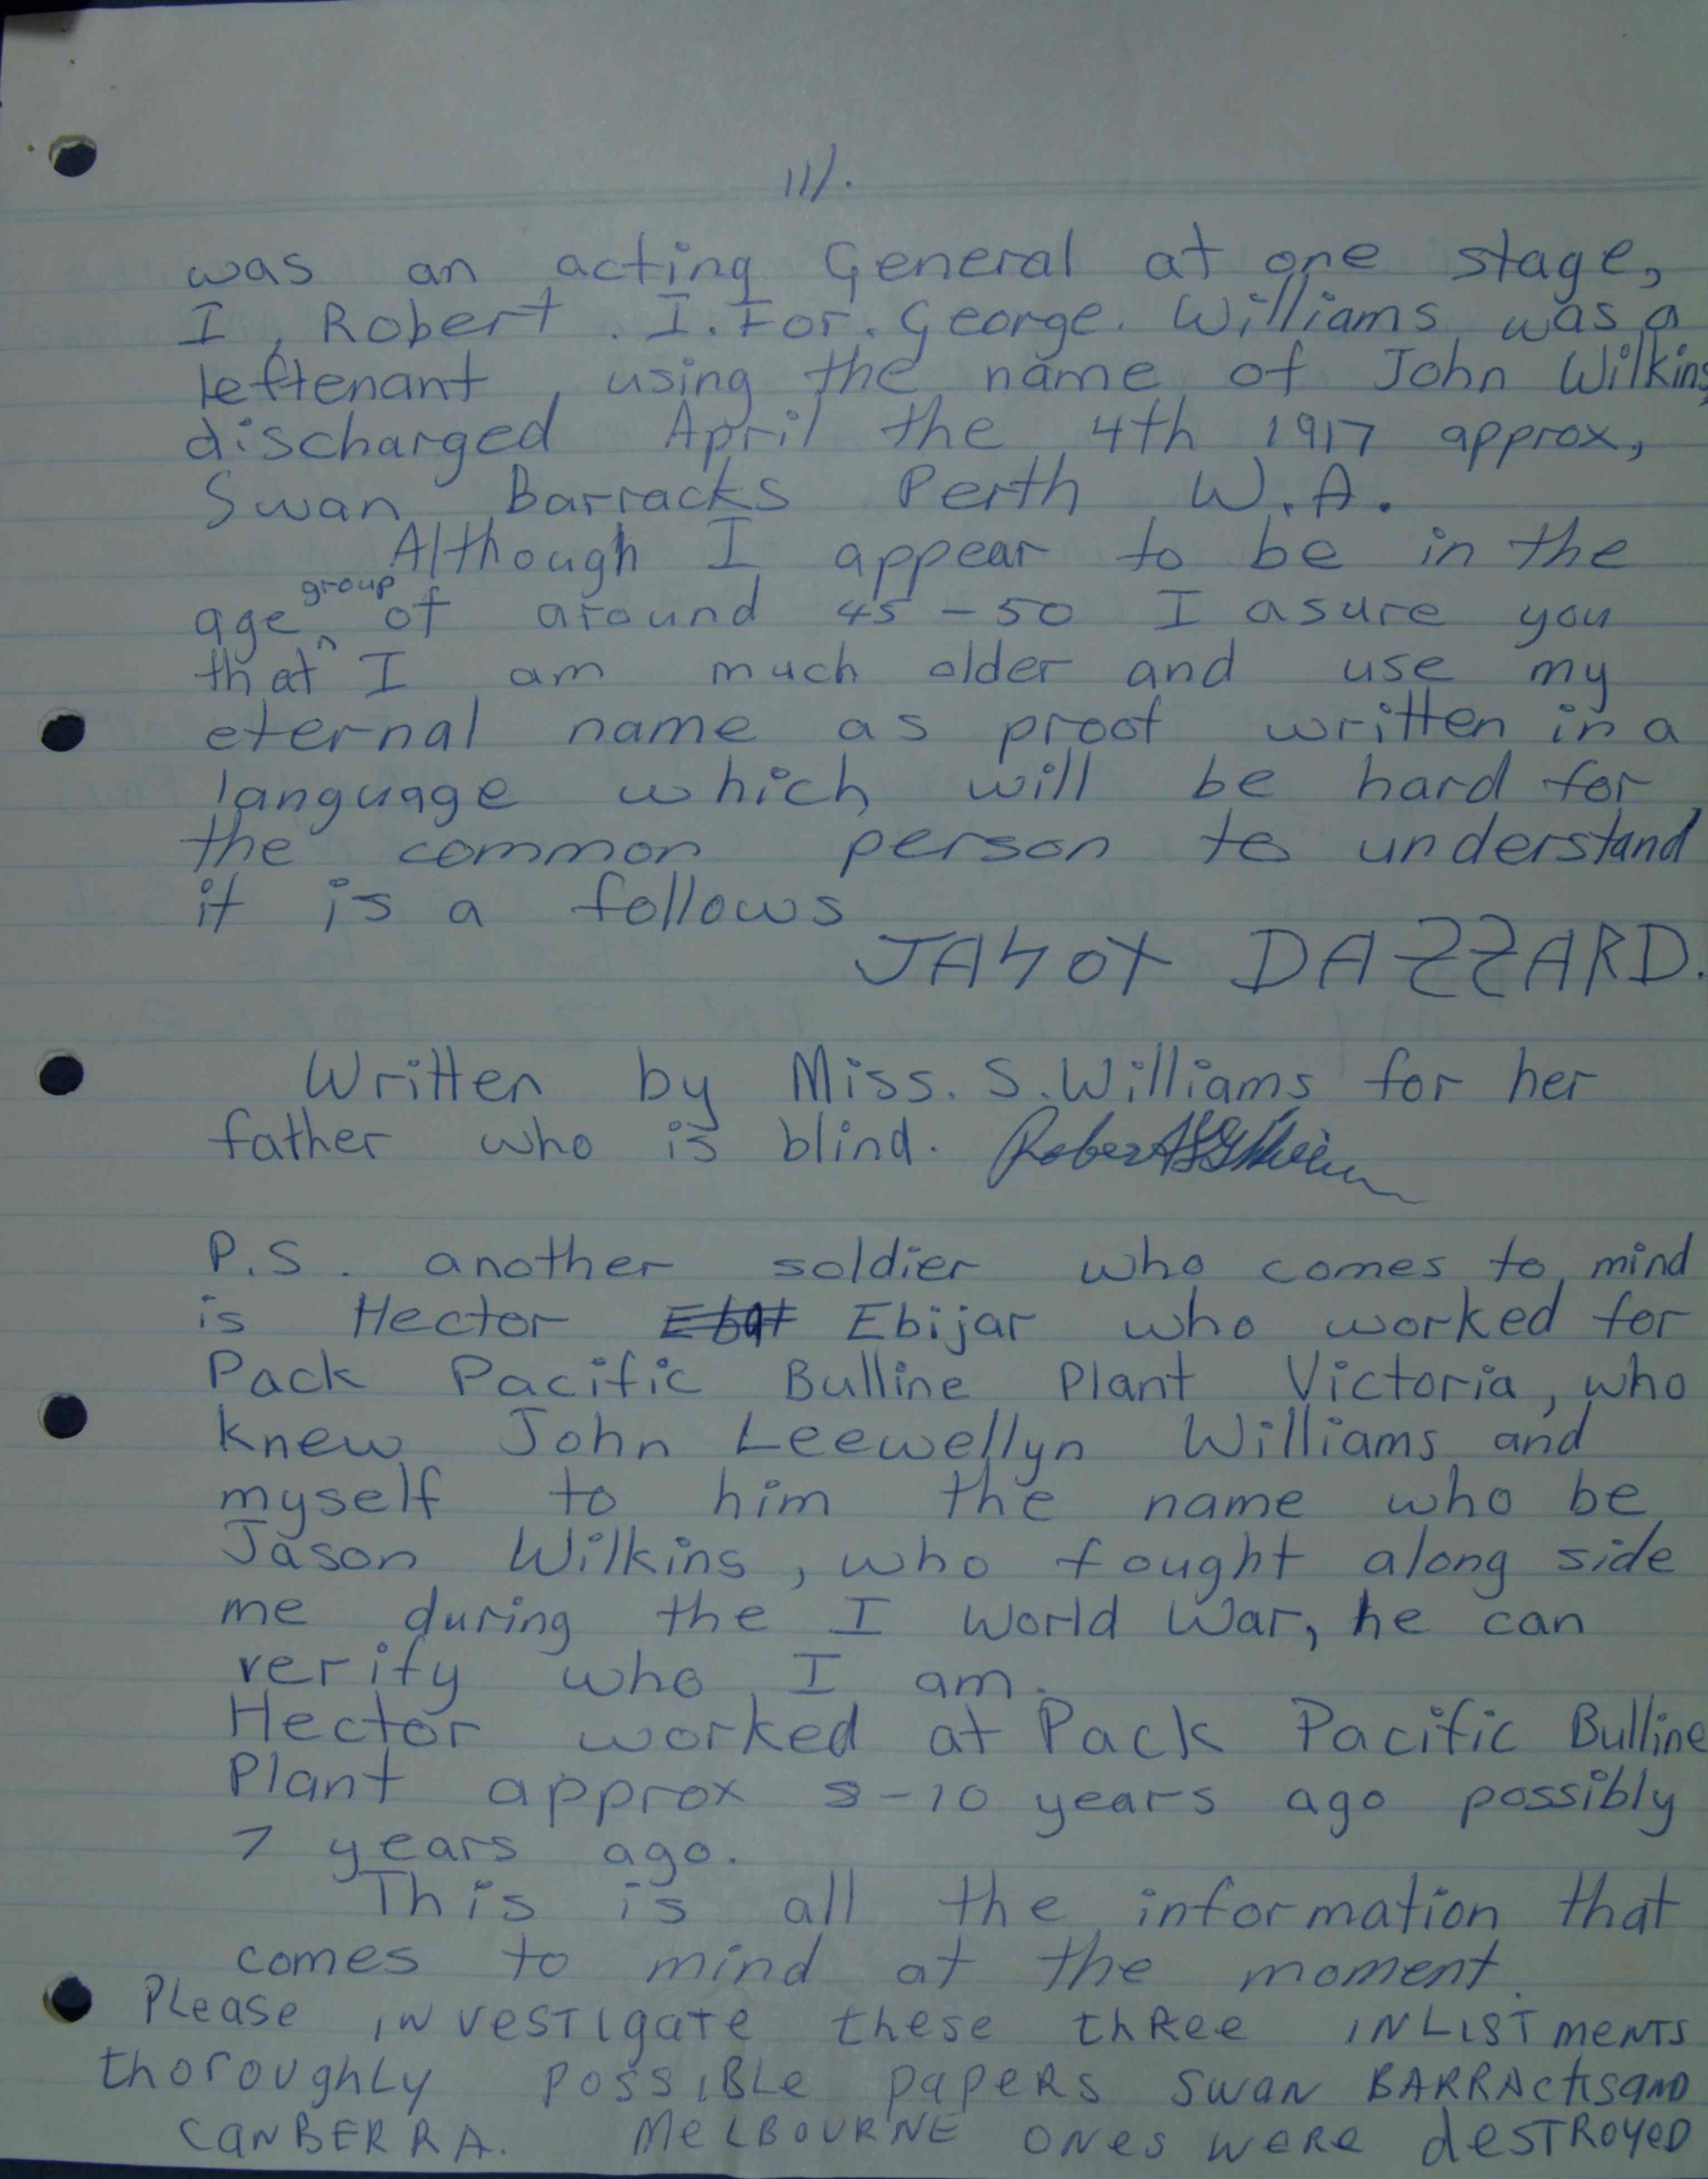 11/.
was an acting General at one stage,
I, Robert. I. For. George. Williams was a
leftenant, using the name of John Wilkins,
discharged April the 4th 1917 approx,
Swan Barracks Perth W.A.
Although I appear to be in the
age group of around 45-50 I asure you
that I am much older and use my
eternal name as proof written in a
language which will be hard for
the common person to understand
it is a follows
DAZZARD.
Written by Miss. S. Williams for her
father who is blind. Robert
P.S. another soldier who comes to mind
is Hector Ebijar who worked for
Pack Pacific Bulline Plant Victoria, who
knew John Leewellyn Williams and
myself to him the name who be
Jason Wilkins, who fought along side
me during the I World War, he can
verify who I am.
Hector worked at Pack Pacific Bulline
Plant approx 8-10 years ago possibly
7 years ago.
This is all the information that
comes to mind at the moment.
Please INVESTIGATE these three INLISTMENTS
thoroughly POSSIBLE PAPERS SWAN BARRACKS AND
CANBERRA. MELBOURNE ONES WERE DESTROYED